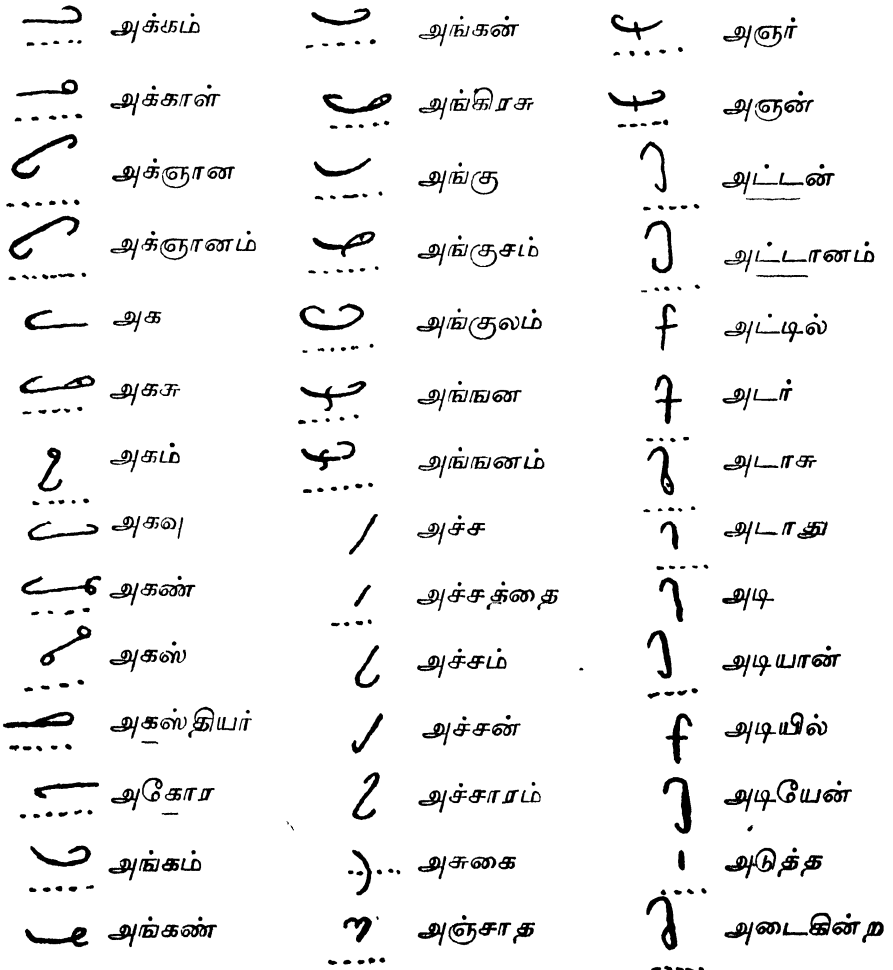 அக்கம்
அக்காள்
அக்ஞான
அக்ஞானம்
அக
அகசு
அகம்
அகவு
அகண்
அகஸ்
அகஸ்தியர்
அகோர
அங்கம்
அங்கண்
அங்கன்
அங்கிரசு
அங்கு
அங்குசம்
அங்குலம்
அங்ஙன
அங்ஙனம்
அச்ச
அச்சத்தை
அச்சம்
அச்சன்
அச்சாரம்
அசுகை
அஞ்சாத
அஞர்
அஞன்
அட்டன்
அட்டானம்
அட்டில்
அடர்
அடாசு
அடாது
அடி
அடியான்
அடியில்
அடியேன்
அடுத்த
அடைகின்ற